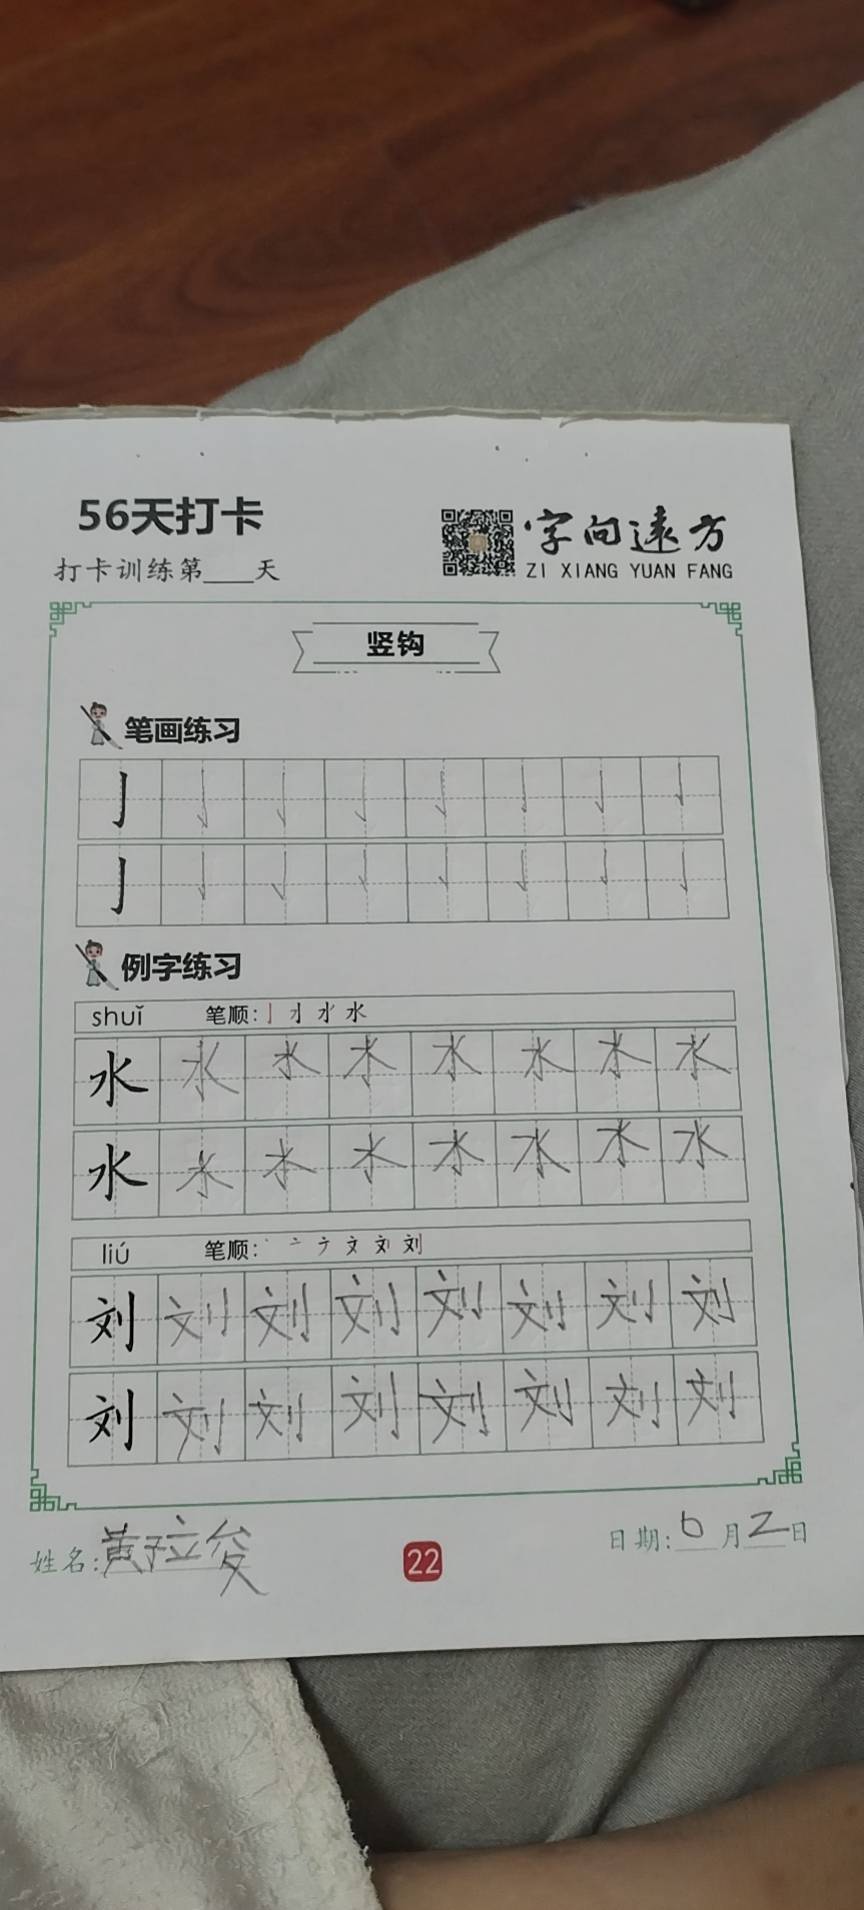 56天打卡
字向远方
打卡训练第____天
ZI XIANG YUAN FANG
竖钩
笔画练习
亅 亅 亅 亅 亅 亅 亅 亅
亅 亅 亅 亅 亅 亅 亅 亅
例字练习
shuǐ 笔顺: 亅 水
水 水 水 水 水 水 水 水
水 水 水 水 水 水 水 水
liú 笔顺: 丶 亠 ナ 文 刘
刘 刘 刘 刘 刘 刘 刘 刘
刘 刘 刘 刘 刘 刘 刘 刘
姓名:黄子立俊
22
日期:6月2日